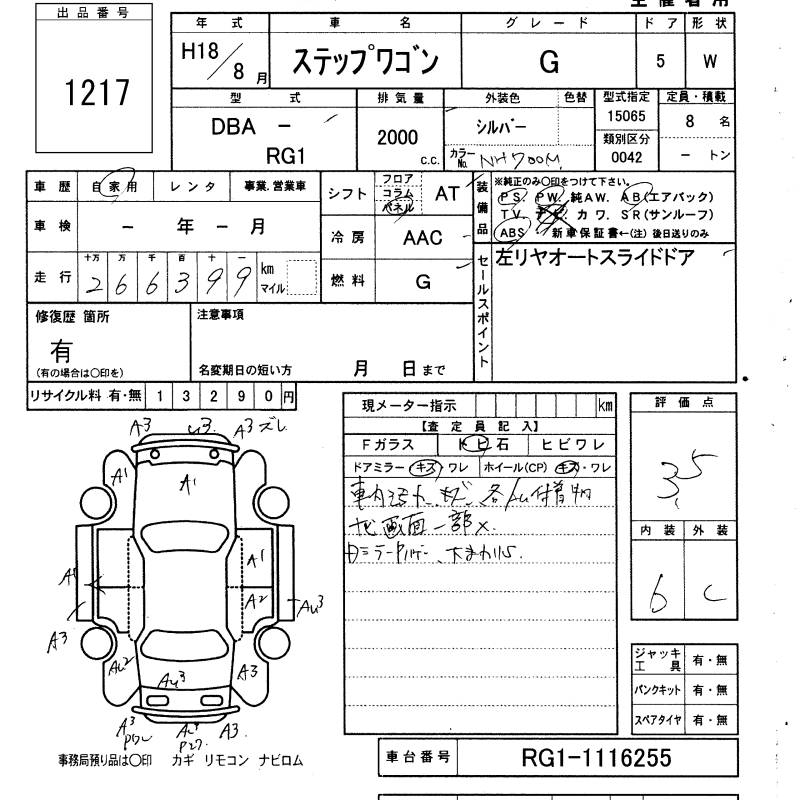 出品番号
1217
年式
H18/8月
車名
ステップワゴン
グレード
G
ドア
5
形状
W
型式
DBA - RG1
排気量
2000 c.c.
外装色
シルバー
色替
カラーNo. NH700M
型式指定
15065
類別区分
0042
定員・積載
8 名
- トン
車歴 自家用 レンタ 事業.営業車
車検 - 年 - 月
走行 十万 万 千 百 十 一
266399 km マイル
シフト フロア コラム パネル AT
冷房 AAC
燃料 G
装備品
※純正のみ○印をつけて下さい。
PS. PW. 純AW. AB(エアバッグ)
TV. カワ. SR(サンルーフ)
ABS 新車保証書←(注) 後日送りのみ
セールスポイント
左リヤオートスライドドア
修復歴 箇所
有
(有の場合は○印を)
注意事項
名変期日の短い方 月 日まで
リサイクル料 有・無 13290円
現メーター指示 km
【査定員記入】
Fガラス トビ石 ヒビワレ
ドアミラー キズ・ワレ ホイール(CP) キズ・ワレ
評価点
3.5
内装 外装
6 C
A3 U3 A3 ズレ
A1 A1
A1
A1 A2
AU3
A3 AU2
AU3 A3
A3 AU3 A3
ジャッキ工具 有・無
パンクキット 有・無
スペアタイヤ 有・無
事務局預り品は○印 カギ リモコン ナビロム
車台番号 RG1-1116255